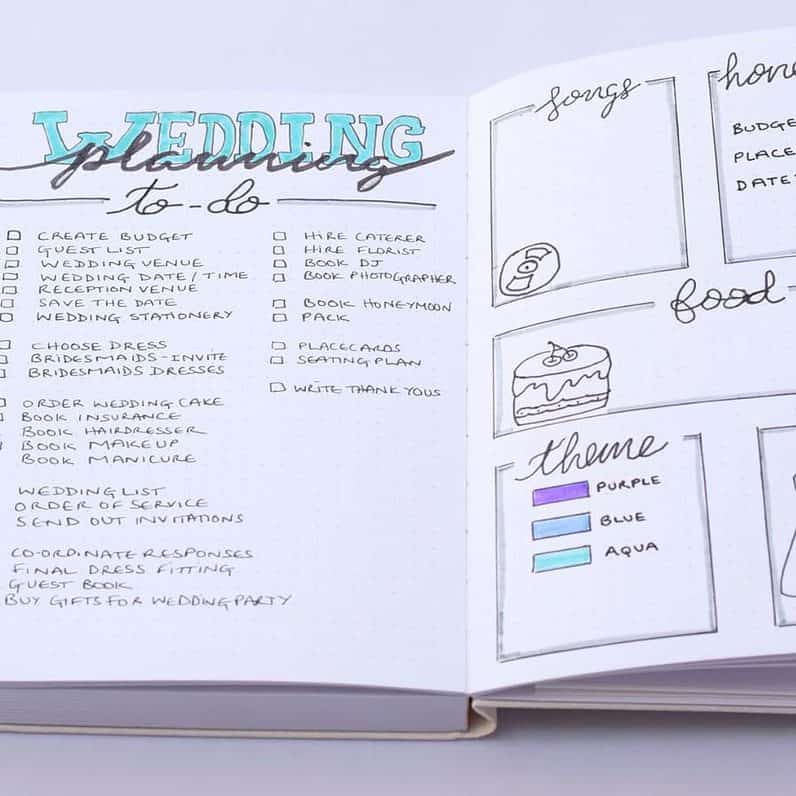 WEDDING
planning
to-do
CREATE BUDGET
GUEST LIST
WEDDING VENUE
WEDDING DATE/TIME
RECEPTION VENUE
SAVE THE DATE
WEDDING STATIONERY
CHOOSE DRESS
BRIDESMAIDS-INVITE
BRIDESMAIDS DRESSES
ORDER WEDDING CAKE
BOOK INSURANCE
BOOK HAIRDRESSER
BOOK MAKEUP
BOOK MANICURE
WEDDING LIST
ORDER OF SERVICE
SEND OUT INVITATIONS
CO-ORDINATE RESPONSES
FINAL DRESS FITTING
GUEST BOOK
BUY GIFTS FOR WEDDING PARTY
HIRE CATERER
HIRE FLORIST
BOOK DJ
BOOK PHOTOGRAPHER
BOOK HONEYMOON
PACK
PLACECARDS
SEATING PLAN
WRITE THANK YOUS
songs
hone
BUDGE
PLACE
DATE
food
theme
PURPLE
BLUE
AQUA